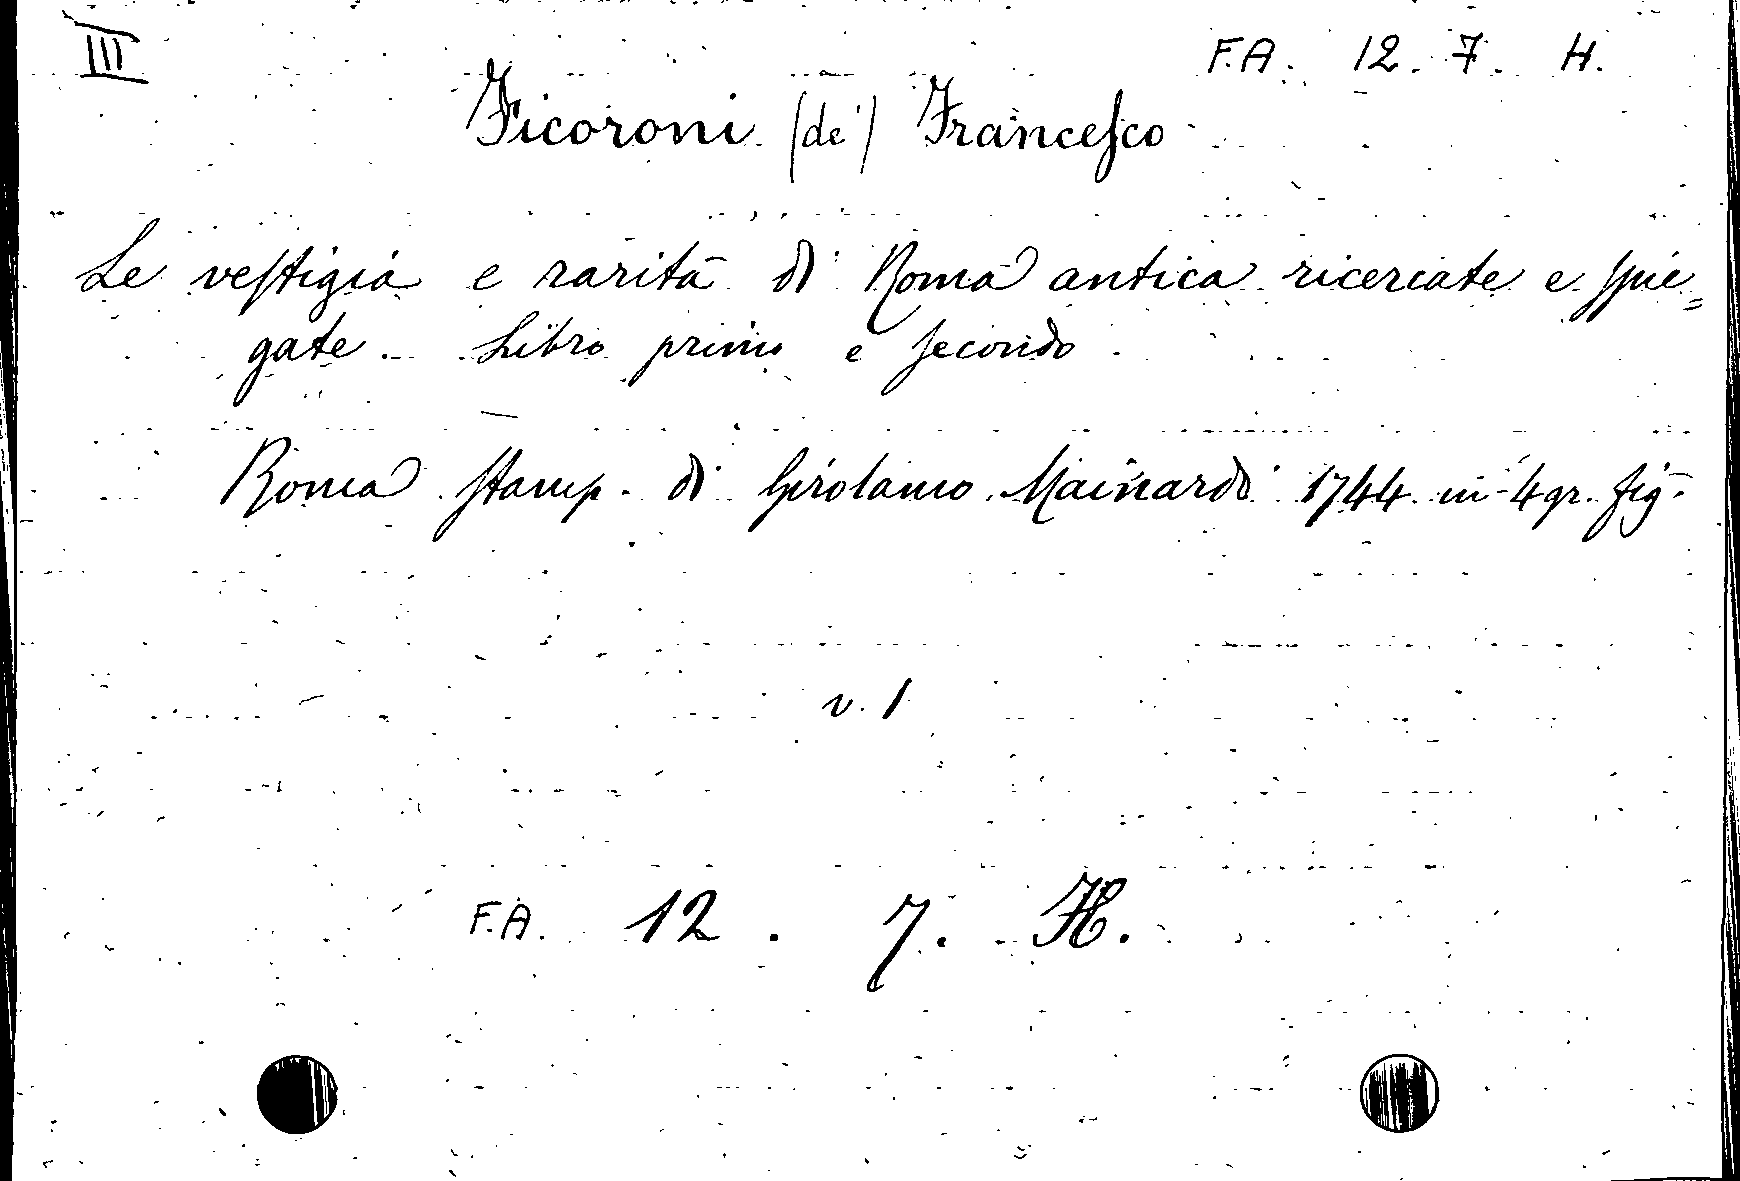 III
F.A. 12. 7. H.
Ficoroni (de') Francesco
Le vestigia e rarità di Roma antica ricercate e spie=
gate. Libro primo e secondo
Roma Stamp. di Girolamo Mainardi 1744 in-4 gr. fig.
v. 1
F.A. 12. 7. H.